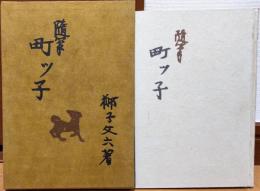 随筆
町ッ子
獅子文六著
随筆
町ッ子